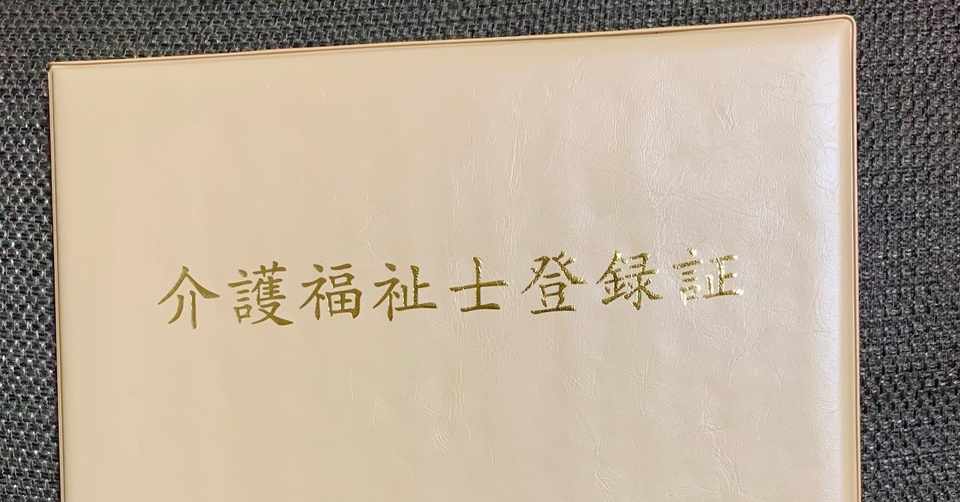 介護福祉士登録証